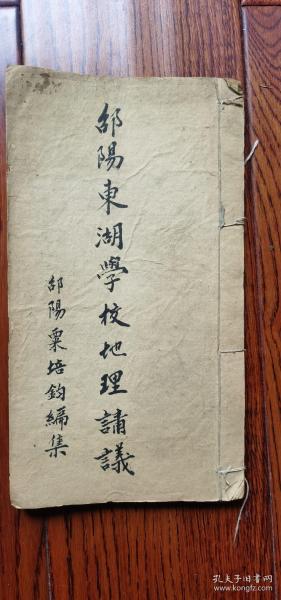 邵陽東湖學校地理講議
邵陽粟培鈞編集
孔夫子旧书网
kongfz.com